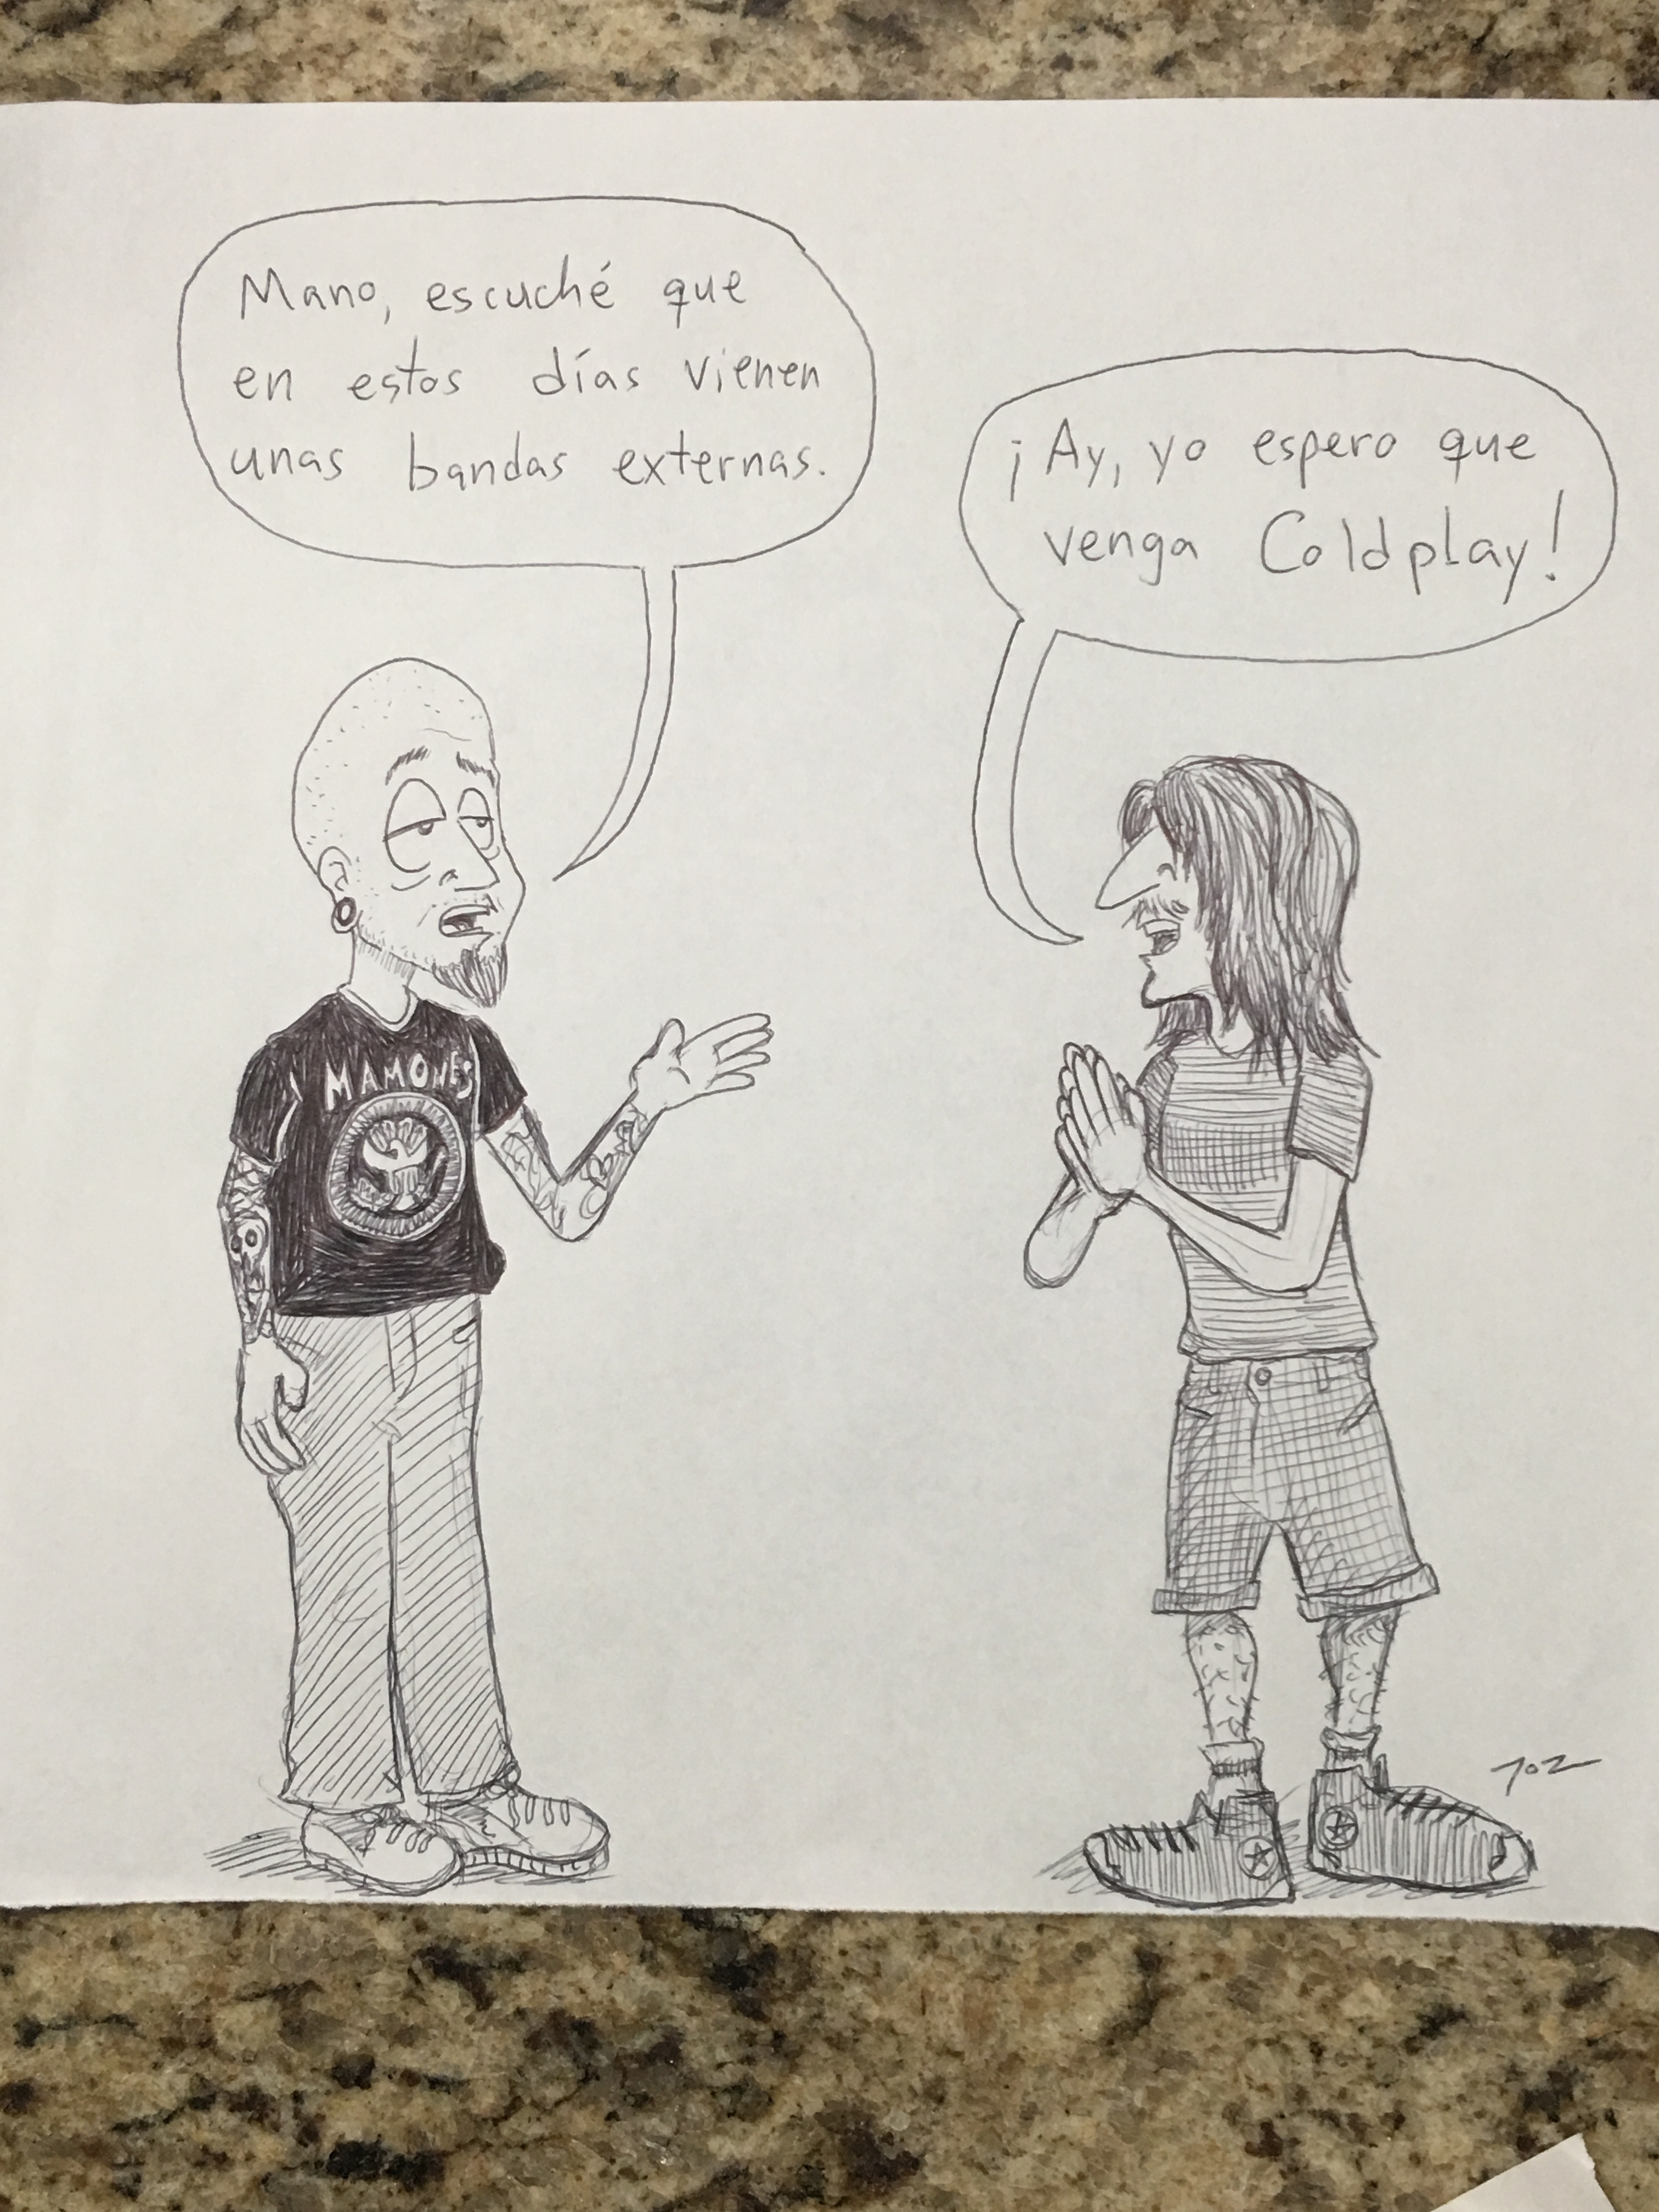 Mano, escuché que
en estos días vienen
unas bandas externas.
¡Ay, yo espero que
venga Coldplay!
MAMONES